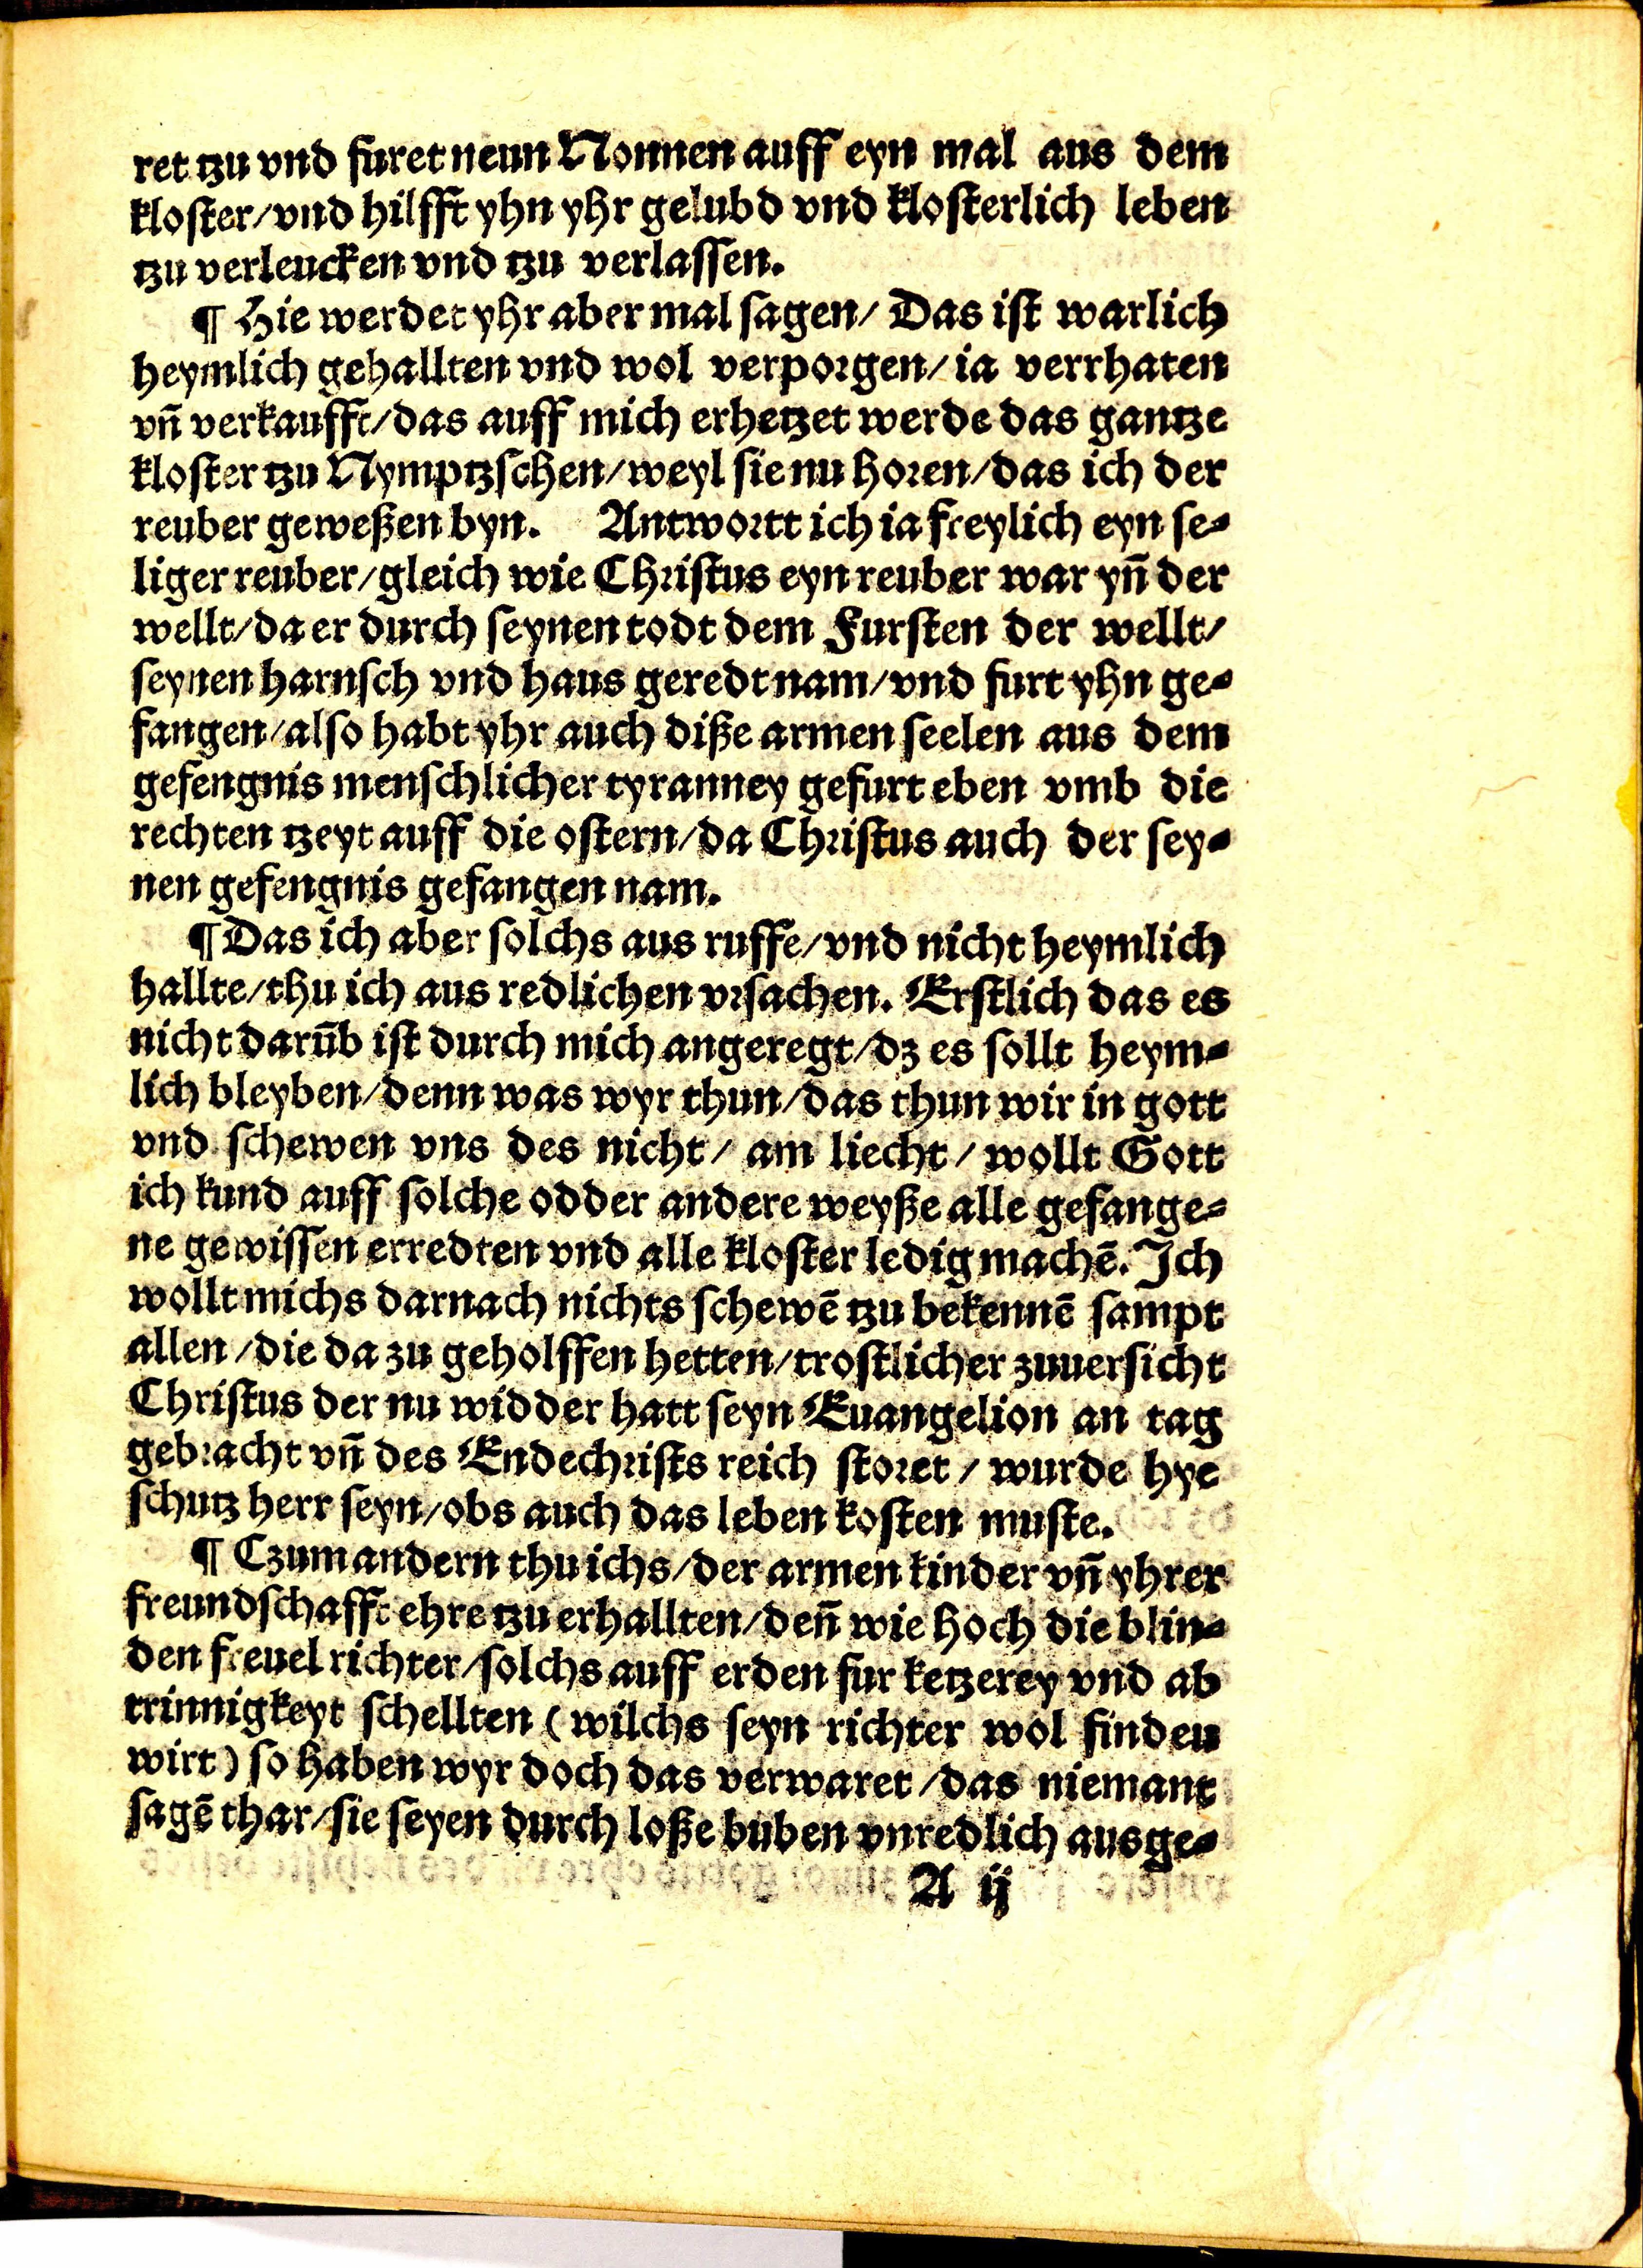 ret tzu vnd furet neun Nonnen auff eyn mal aus dem
kloster/vnd hilfft yhn yhr gelubd vnd klosterlich leben
tzu verleucken vnd tzu verlassen.
¶ Hie werdet yhr aber mal sagen/ Das ist warlich
heymlich gehallten vnd wol verporgen/ia verrhaten
vn̄ verkaufft/das auff mich erhetzet werde das gantze
kloster tzu Nymptzschen/weyl sie nu horen/das ich der
reuber geweßen byn. Antwortt ich ia freylich eyn se⸗
liger reuber/gleich wie Christus eyn reuber war yn̄ der
wellt/da er durch seynen todt dem Fursten der wellt/
seynen harnsch vnd haus geredt nam/vnd furt yhn ge⸗
fangen/also habt yhr auch diße armen seelen aus dem
gefengnis menschlicher tyranney gefurt eben vmb die
rechten tzeyt auff die ostern/da Christus auch der sey⸗
nen gefengnis gefangen nam.
¶ Das ich aber solchs aus ruffe/vnd nicht heymlich
hallte/thu ich aus redlichen vrsachen. Erstlich das es
nicht darūb ist durch mich angeregt/dz es sollt heym⸗
lich bleyben/denn was wyr thun/das thun wir in gott
vnd schewen vns des nicht/ am liecht/ wollt Gott
ich kund auff solche odder andere weyße alle gefange⸗
ne gewissen erredten vnd alle kloster ledig machē. Ich
wollt michs darnach nichts schewē tzu bekennē sampt
allen/die da zu geholffen hetten/trostlicher zuuersicht
Christus der nu widder hatt seyn Euangelion an tag
gebracht vn̄ des Endechrists reich storet/ wurde hye
schutz herr seyn/obs auch das leben kosten muste.
¶ Czum andern thu ichs/der armen kinder vn̄ yhrer
freundschafft ehre tzu erhallten/den̄ wie hoch die blin⸗
den freuel richter/solchs auff erden fur ketzerey vnd ab
trinnigkeyt schellten (wilchs seyn richter wol finden
wirt) so haben wyr doch das verwaret/das niemant
sagē thar/sie seyen durch loße buben vnredlich ausge⸗
A ij